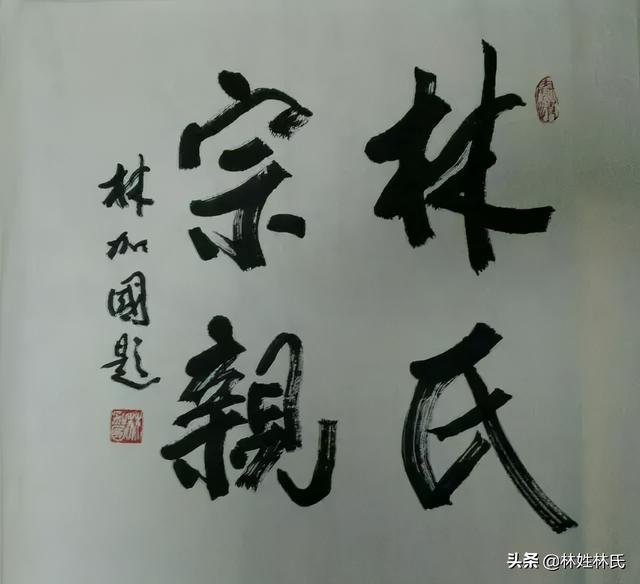 林氏
宗親
林加國題
头条 @林姓林氏